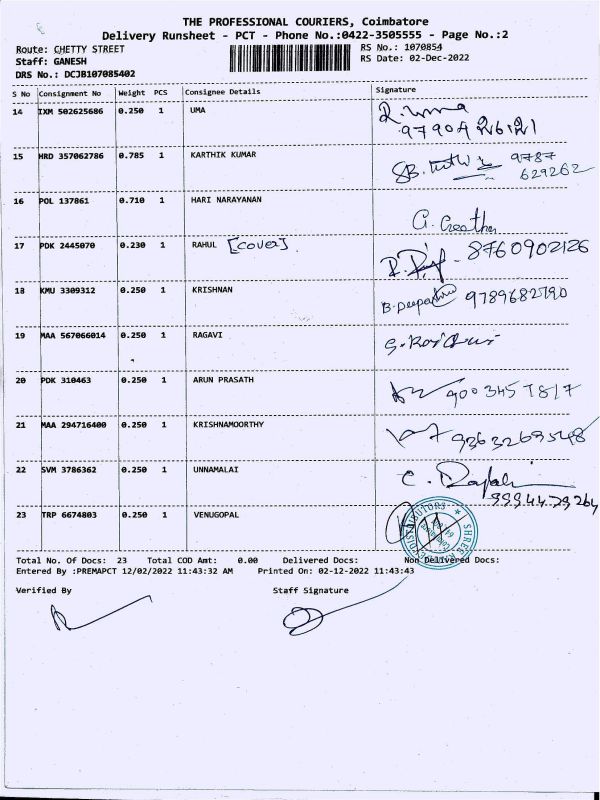 THE PROFESSIONAL COURIERS, Coimbatore
Delivery Runsheet - PCT - Phone No.:0422-3505555 - Page No.:2
Route: CHETTY STREET
RS No.: 1070854
Staff: GANESH
RS Date: 02-Dec-2022
DRS No.: DCJB107085402
S No Consignment No Weight PCS Consignee Details Signature
14 IXM 502625686 0.250 1 UMA R. Uma
15 HRD 357062786 0.785 1 KARTHIK KUMAR 9787
629262
16 POL 137861 0.710 1 HARI NARAYANAN G. Geetha
17 PDK 2445070 0.230 1 RAHUL [COVER] 8760902126
18 KMU 3309312 0.250 1 KRISHNAN B. Deepa 9789682790
19 MAA 567066014 0.250 1 RAGAVI
20 PDK 310463 0.250 1 ARUN PRASATH 9003457817
21 MAA 294716400 0.250 1 KRISHNAMOORTHY 9363269548
22 SVM 3786362 0.250 1 UNNAMALAI
99944 29264
23 TRP 6674803 0.250 1 VENUGOPAL
Total No. Of Docs: 23 Total COD Amt: 0.00 Delivered Docs: Non Delivered Docs:
Entered By :PREMAPCT 12/02/2022 11:43:32 AM Printed On: 02-12-2022 11:43:43
Verified By Staff Signature